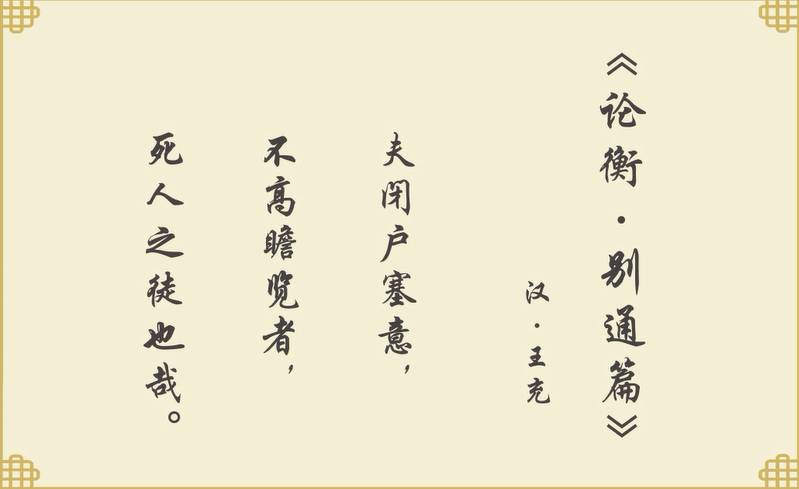 《论衡·别通篇》
汉·王充
夫闭户塞意，
不高瞻览者，
死人之徒也哉。